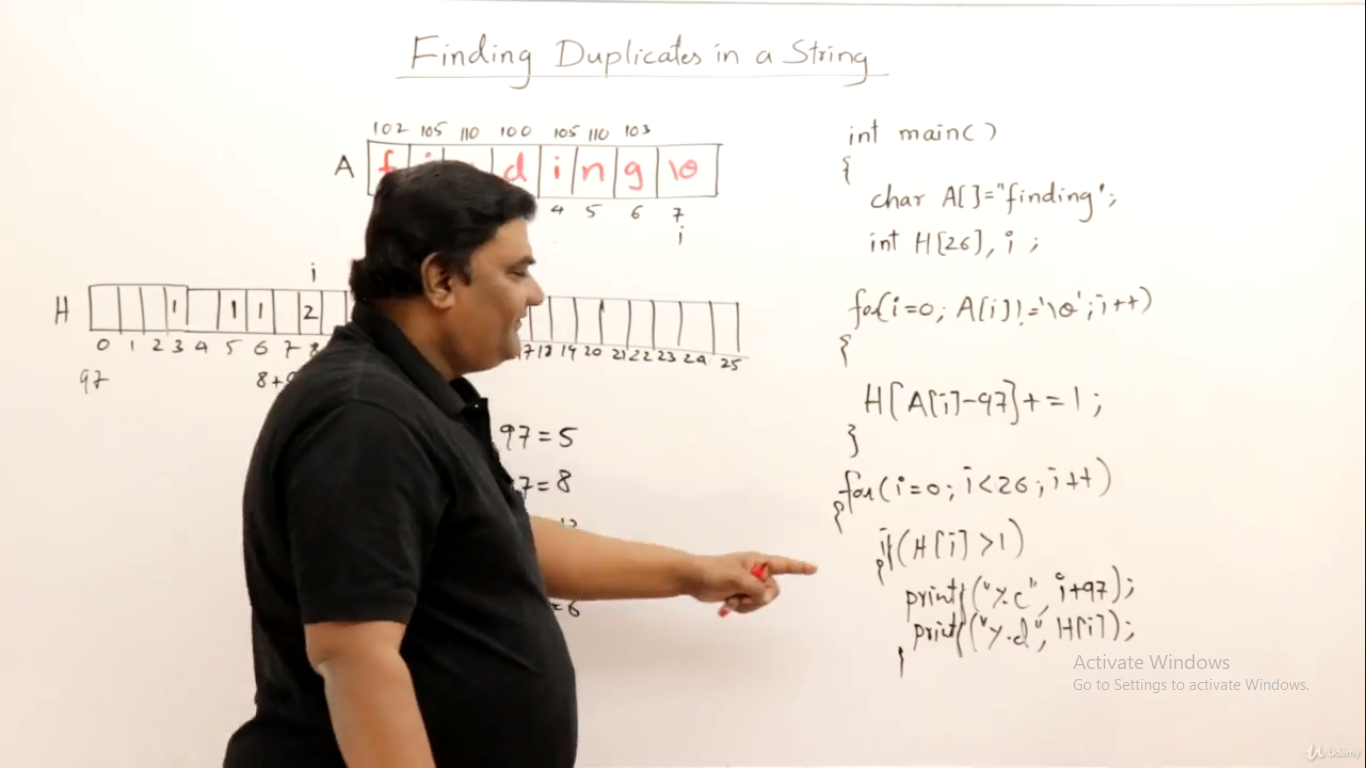 Finding Duplicates in a String
102 105 110 100 105 110 103
A f i d i n g \0
4 5 6 7
i
i
H 1 1 1 2
0 1 2 3 4 5 6 7 8 17 18 19 20 21 22 23 24 25
97 8+9
97=5
7=8
=6
int main()
{
char A[]="finding";
int H[26], i ;
for(i=0; A[i]!='\0';i++)
{
H[A[i]-97]+=1;
}
for(i=0; i<26; i++)
{
if(H[i]>1)
{
printf("%c", i+97);
printf("%d", H[i]);
}
Activate Windows
Go to Settings to activate Windows.
Udemy